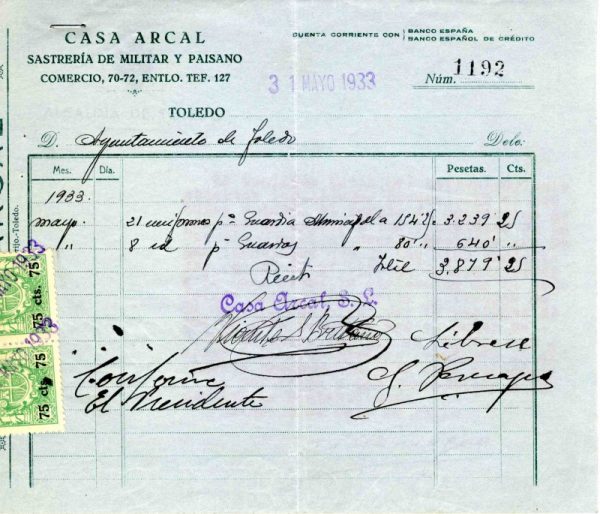 CASA ARCAL
SASTRERÍA DE MILITAR Y PAISANO
COMERCIO, 70-72, ENTLO. TEF. 127
CUENTA CORRIENTE CON BANCO ESPAÑA
BANCO ESPAÑOL DE CRÉDITO
31 MAYO 1933
Núm. 1192
TOLEDO
D. Ayuntamiento de Toledo Debe:
Mes. Día. Pesetas. Cts.
1933.
mayo. 21 uniformes pª Guardia Municipal a 154'25 3.239 25
" 8 id pª Guardas " 80'" 640' "
Recibí 3.879' 25
Casa Arcal S. L.
Conforme
El Presidente
75 cts. 75
75 cts. 75
1933
1933